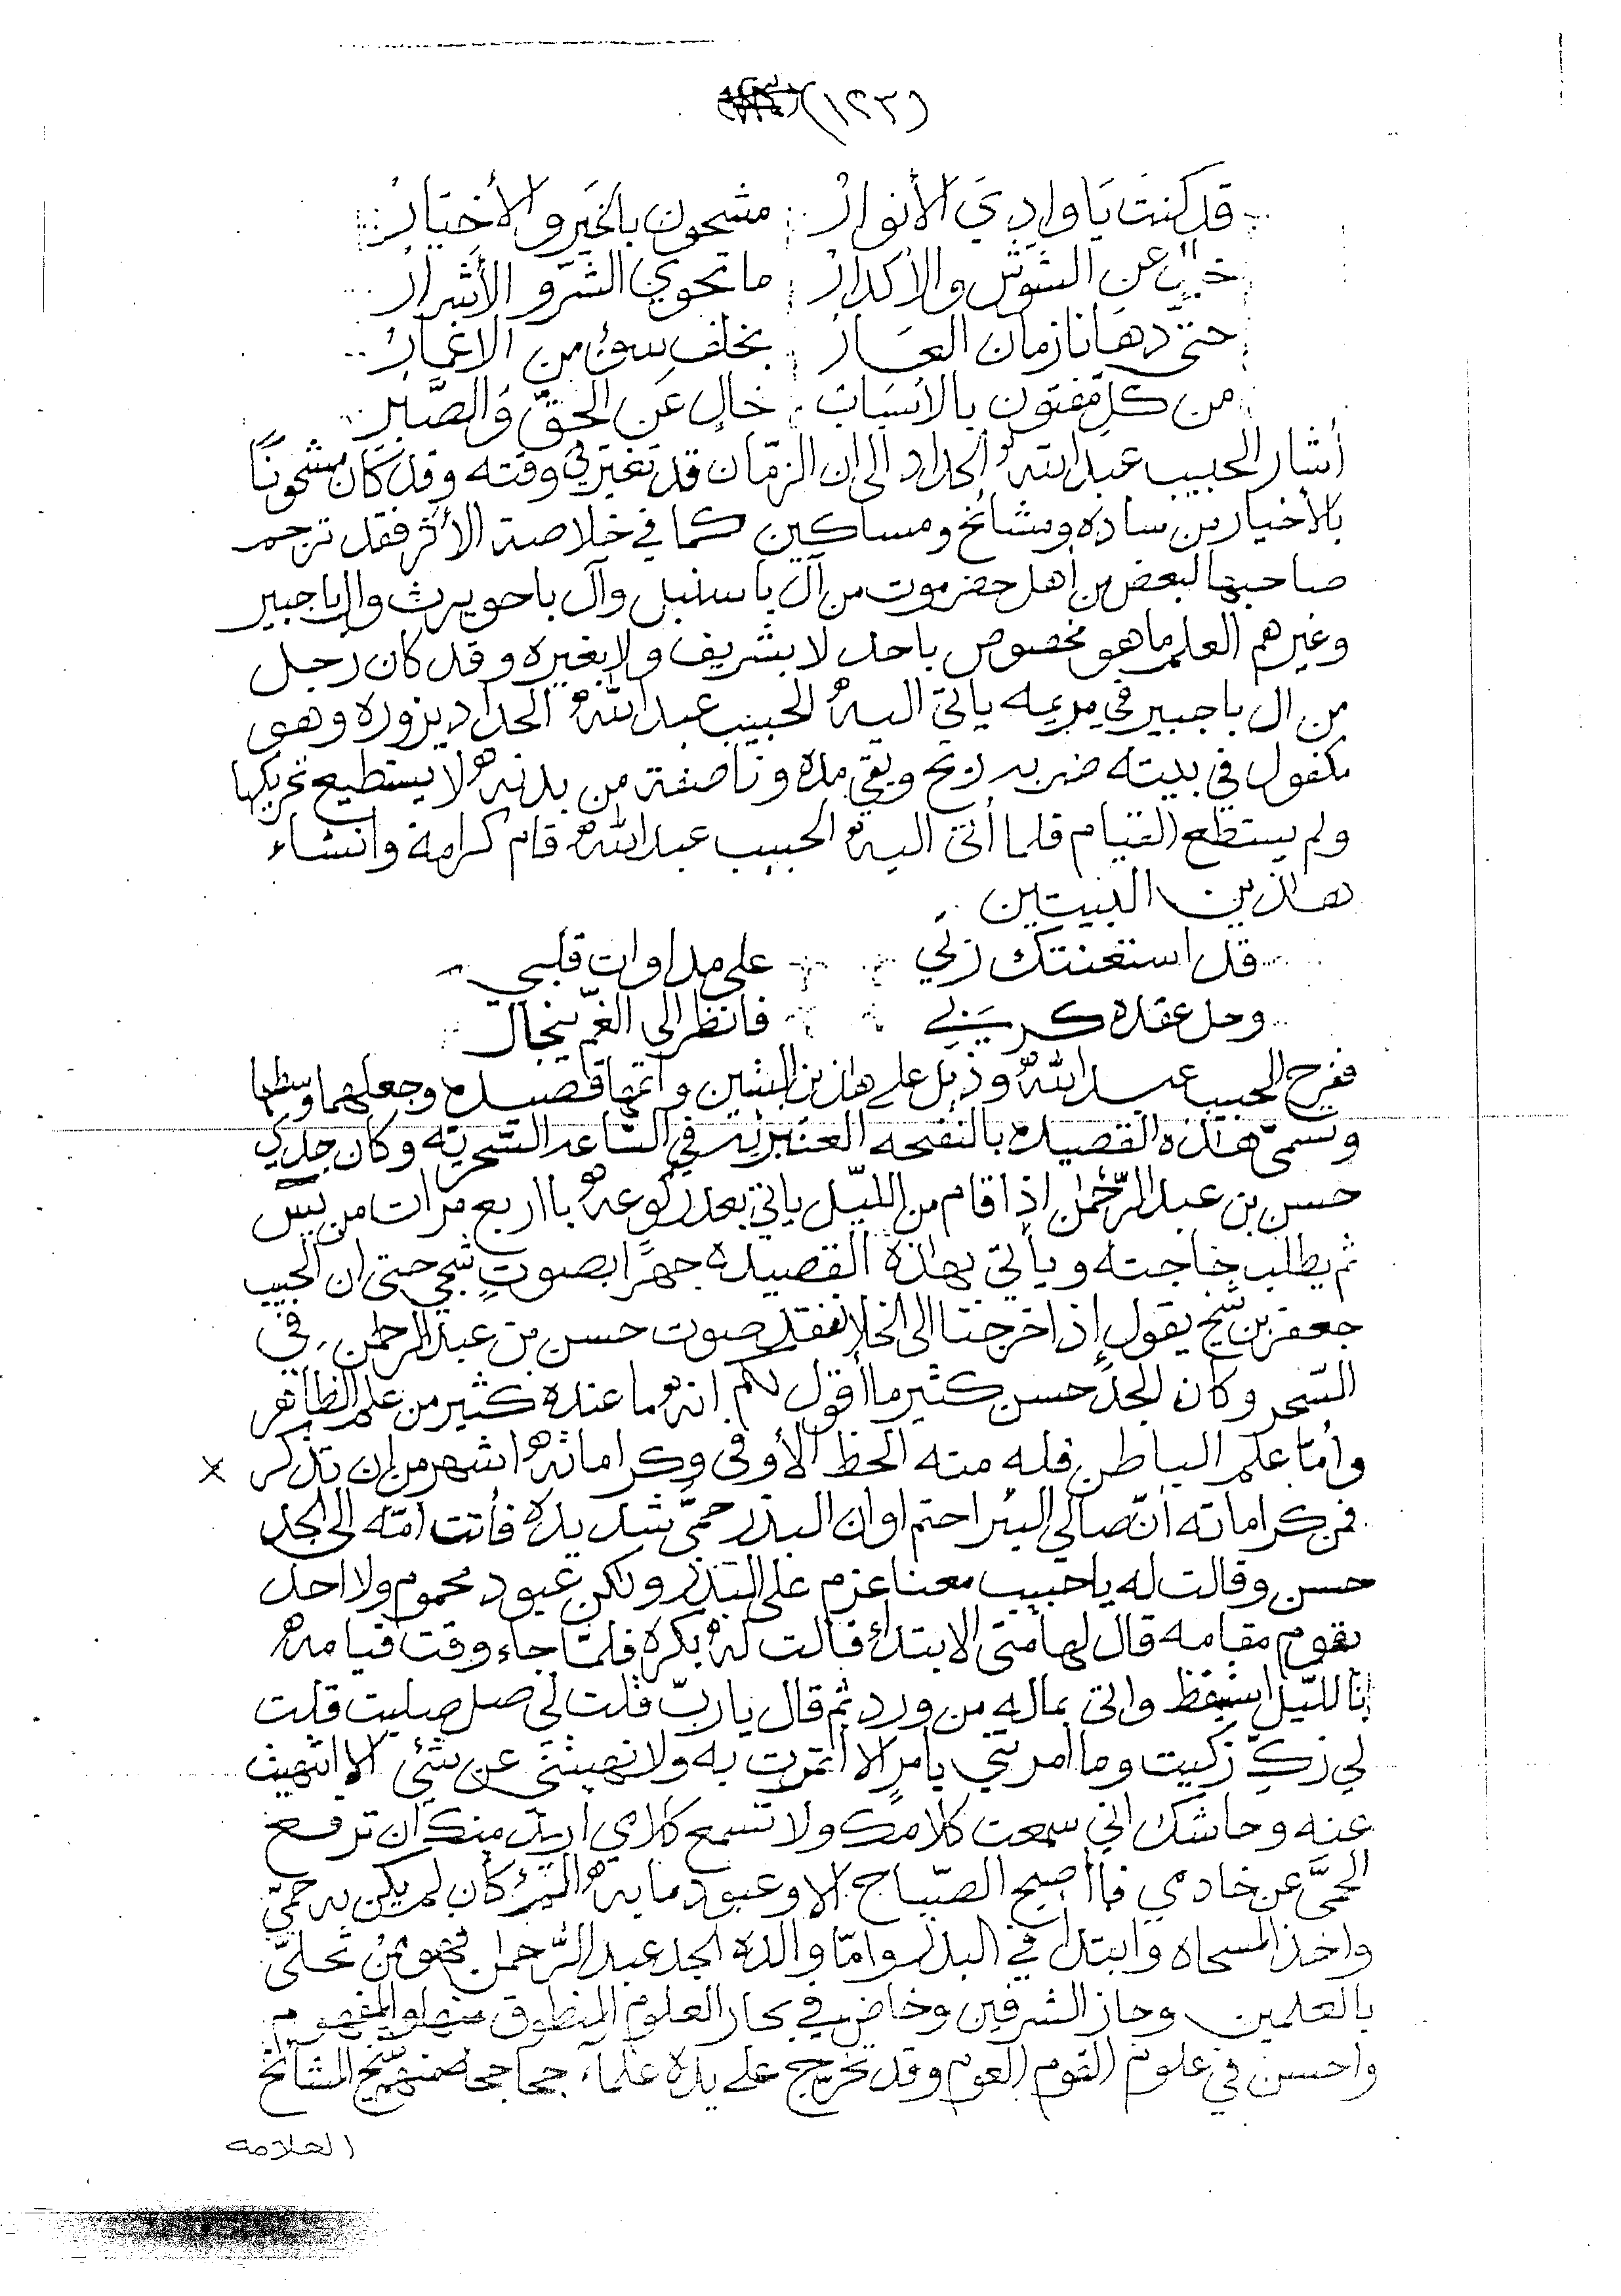 (١٢٣)
قد كنت يا وادي الأنوار : مشحون بالخير والأخيار
خالي عن الشوش والأكدار : ما تحوي الشرّ والأشرار
حتى دهانا زمان العار : بخلف سوء من الاغمار
من كل مفتون بالأنساب : خالٍ عن الحقّ والصَّبر
أشار الحبيب عبدالله الحداد الى ان الزمان قد تغير في وقته وقد كان مشحونًا
بالأخيار من ساده ومشائخ ومساكين كما في خلاصة الأثر فقد ترجم
صاحبها لبعض من أهل حضرموت من آل باسنبل وآل باحويرث وال باجبير
وغيرهم العلم ما هو مخصوص باحد لا بشريف ولا بغيره وقد كان رجل
من ال باجبير في مريمه ياتي اليه الحبيب عبدالله الحداد يزوره وهو
مكفول في بيته ضربه ريح وبقي مده وناصفة من بدنه لا يستطيع تحريكها
ولم يستطع القيام فلما أتى اليه الحبيب عبدالله قام كرامة وانشاء
هاذين البيتين
قد استعنتك ربي : على مداوات قلبي
وحل عقدة كربي : فانظر الى الغمّ ينجال
ففرح الحبيب عبدالله وذيل على هاذين البيتين واتمها قصيده وجعلهما وسطها
وتسمى هاذه القصيده بالنفحه العنبريه في الساعه السّحريّه وكان جدي
حسن بن عبدالرّحمٰن إذا قام من الليّل ياتي بعد ركوعه باربع مرات من يس
ثم يطلب حاجته ويأتي بهاذه القصيده جهرًا بصوتٍ شجي حتى ان الحبيب
جعفر بن شيخ يقول إذا خرجنا الى الخلا نفقد صوت حسن بن عبدالرحمن في
السّحر وكان الجد حسن كثير ما أقول لكم انه ما عنده كثير من علم الظاهر
وأمّا علم الباطن فله منه الحظ الأوفى وكراماته اشهر من ان تذكر
فمن كراماته انّ صالي البير احتم اوان البذر حمىّ شديده فأتت امّه الى الجد
حسن وقالت له يا حبيب معنا عزم على البذر ولكن عبود محموم ولا احد
يقوم مقامه قال لها متى الابتداء قالت له بكره فلمّا جاء وقت قيامه
بالليّل استيقظ واتى بماله من ورد ثم قال يا ربّ قلت لي صل صليت قلت
لي زكِّ زكيت وما امرتني بامرٍ الا ائتمرت به ولا نهيتني عن شئ الا انتهيت
عنه وحاشك اني سمعت كلامك ولا تسمع كلامي اريد منك ان ترفع
الحمىَّ عن خادمي فما أصبح الصّباح الا وعبود ما به اثر كان لم يكن به حمىّ
واخذ المسحاه وابتدا في البذر وامّا والده الجد عبدالرّحمان فهو مّن تحلىّ
بالعلمين وحاز الشرفين وخاض في بحار العلوم المنطوق منها والمفهوم
واحسن في علوم القوم العوم وقد تخرج على يده علماء جحاجحه منهم شيخ المشائخ
العلامه